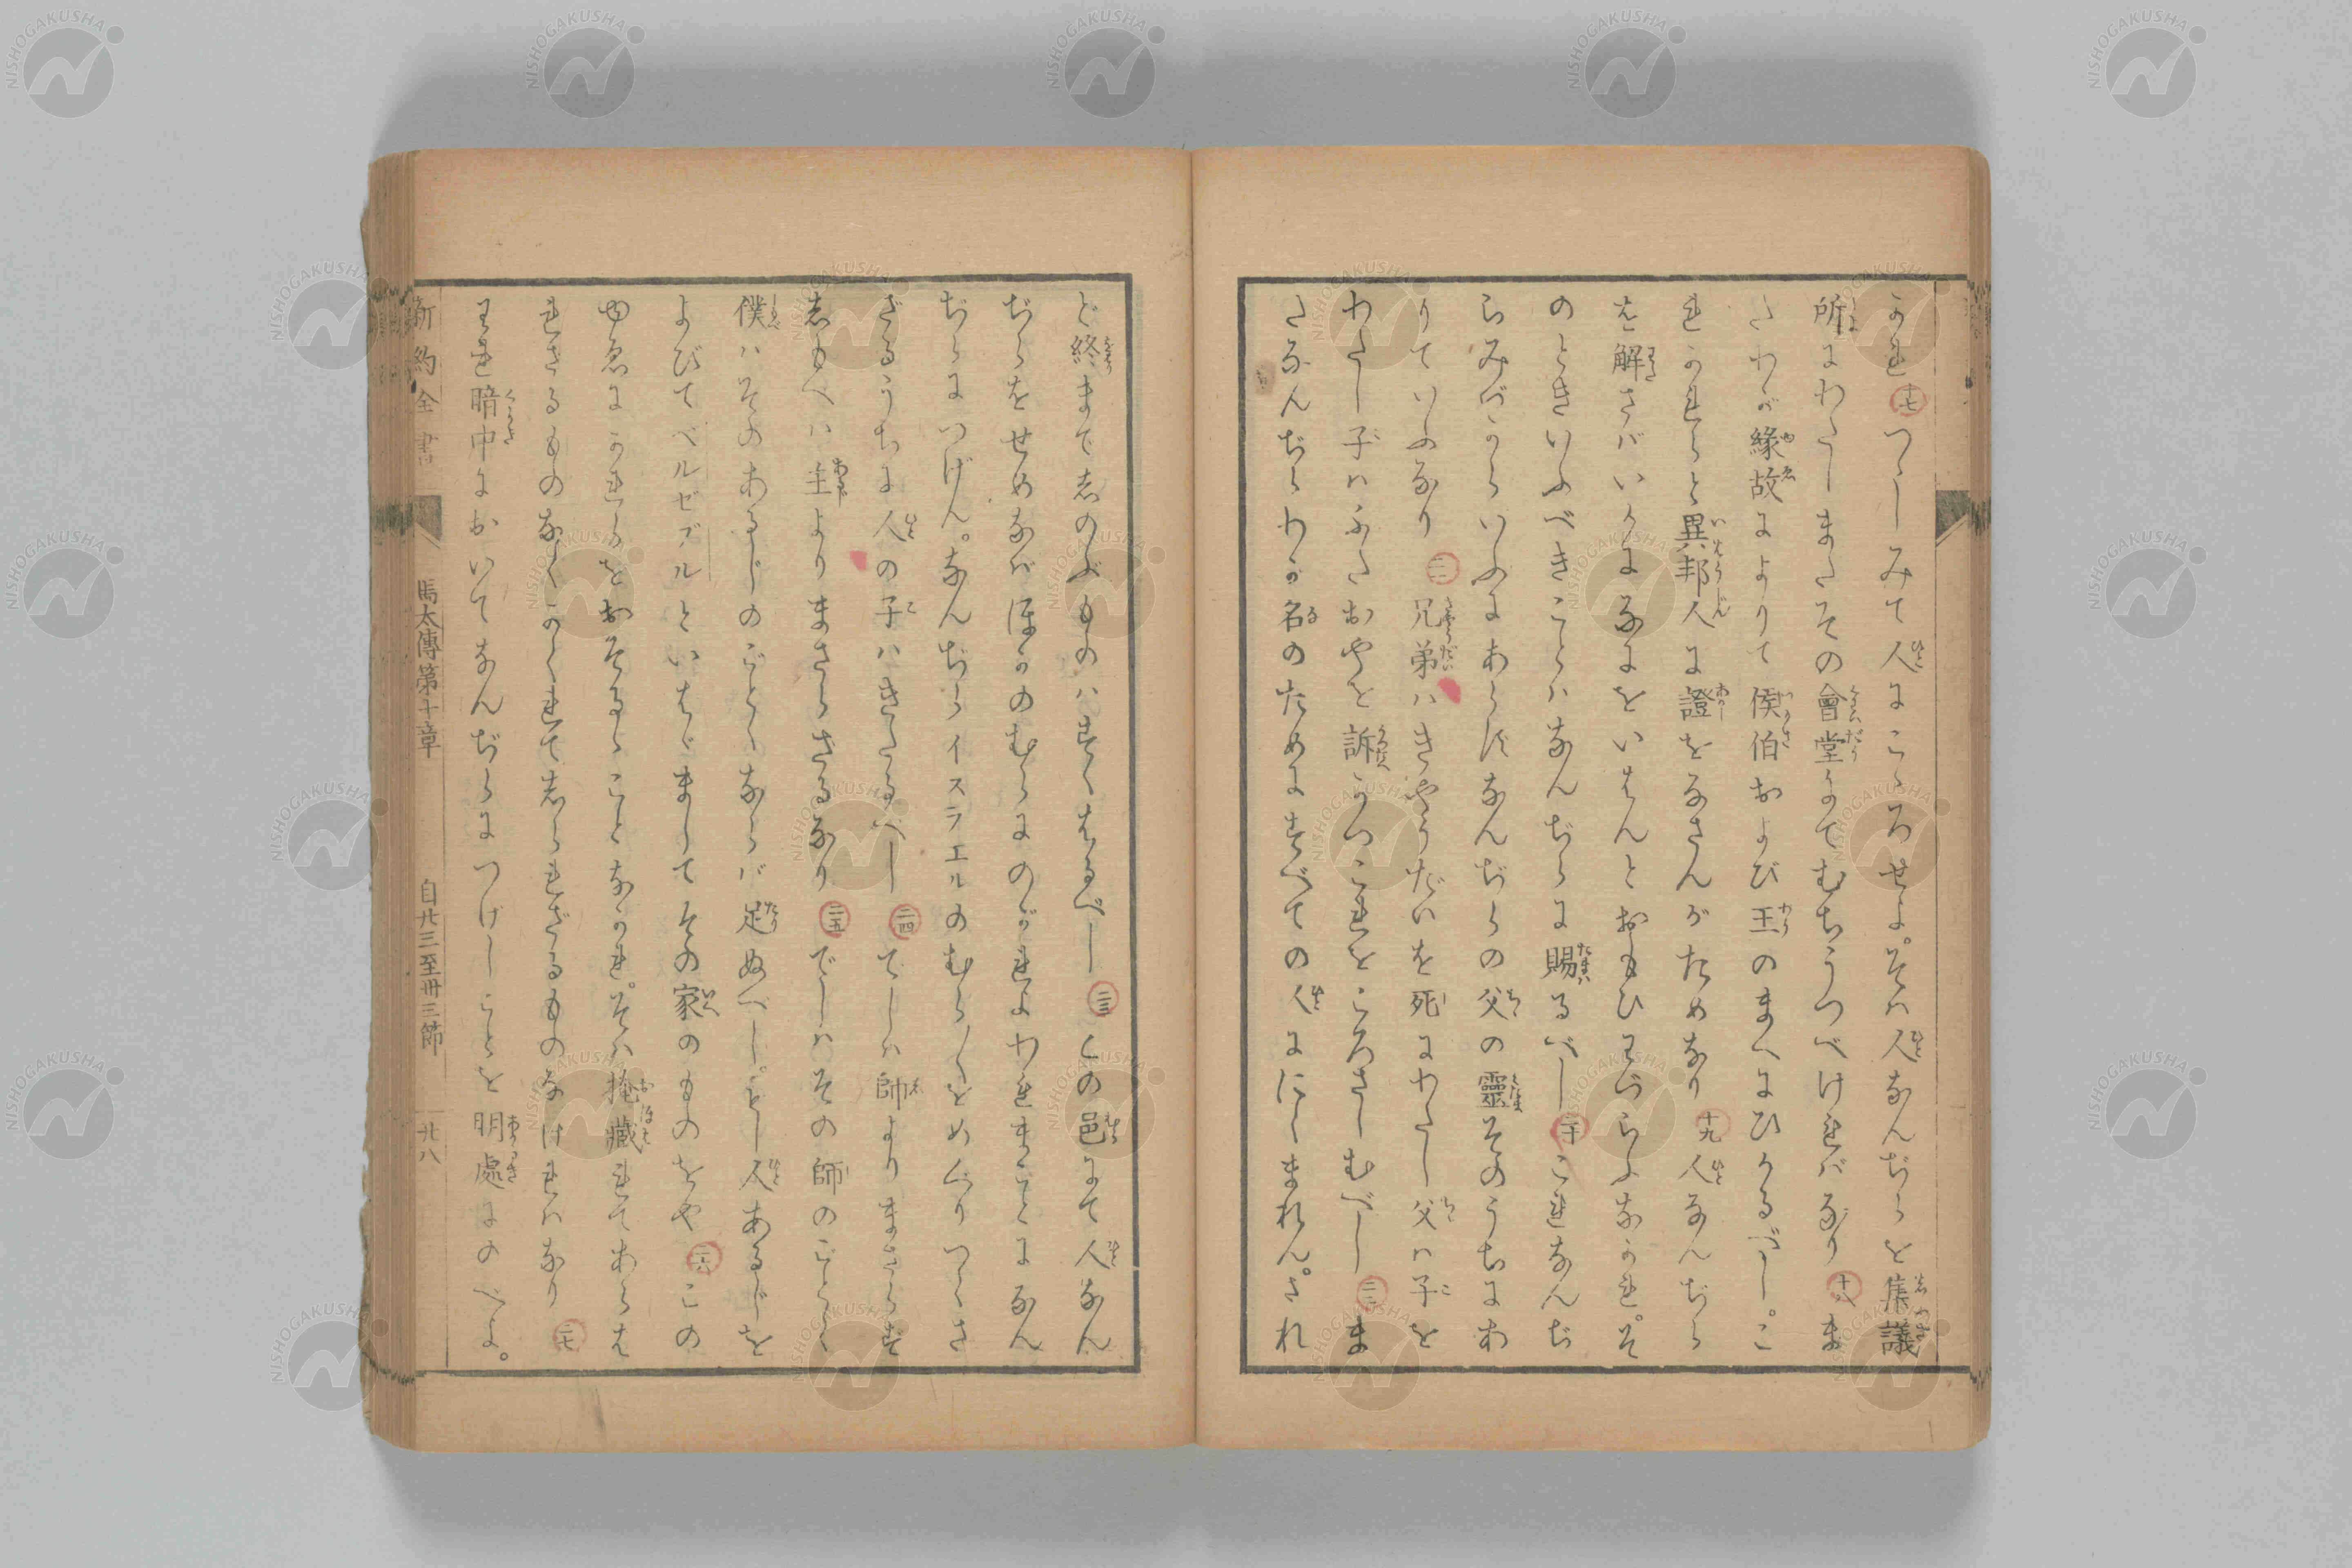 かれ 十七 つゝしみて人にこゝろせよ。そハ人なんぢらを集議
所にわたしまたその會堂にてむちうつべけれバなり 十八 ま
たわが緣故によりて侯伯および王のまへにひかるべし。こ
れかれらと異邦人に證をなさんがためなり 十九 人なんぢら
を解さバいかになにをいはんとおもひわづらふなかれ。そ
のときいふべきことハなんぢらに賜るべし 二十 これなんぢ
らみづからいふにあらずなんぢらの父の靈そのうちにあ
りていふなり 二一 兄弟ハきやうだいを死にわたし父ハ子を
わたし子ハふたおやを訴かつこれをころさしむべし 二二 ま
たなんぢらわが名のためにすべての人ににくまれん。され
ど終までしのぶものハすくはるべし 二三 この邑にて人なん
ぢらをせめなバほかのむらにのがれよわれまことになん
ぢらにつげん。なんぢらイスラエルのむら／＼をめぐりつくさ
ざるうちに人の子ハきたるべし 二四 でしハ師よりまさらず
しもべハ主よりまさらざるなり 二五 でしハその師のごとく
僕ハそのあるじのごとくならバ足ぬべし。もし人あるじを
よびてベルゼブルといはゞましてその家のものをや 二六 この
ゆゑにかれらをおそるゝことなかれ。そハ掩藏れてあらは
れざるものなくかくれてしられざるものなけれハなり 二七
われ暗中においてなんぢらにつげしことを明處にのべよ。
新約全書 馬太傳第十章 自廿三至卅三節 廿八
NISHOGAKUSHA